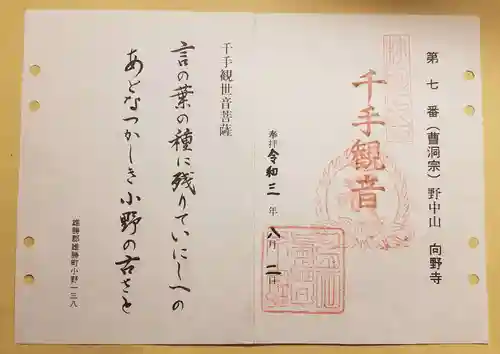 第七番(曹洞宗)野中山 向野寺
千手観音
奉拝 令和三年八月二日
千手観世音菩薩
言の葉の種に残りていにしへの
あとなつかしき小野の古さと
雄勝郡雄勝町小野一三八